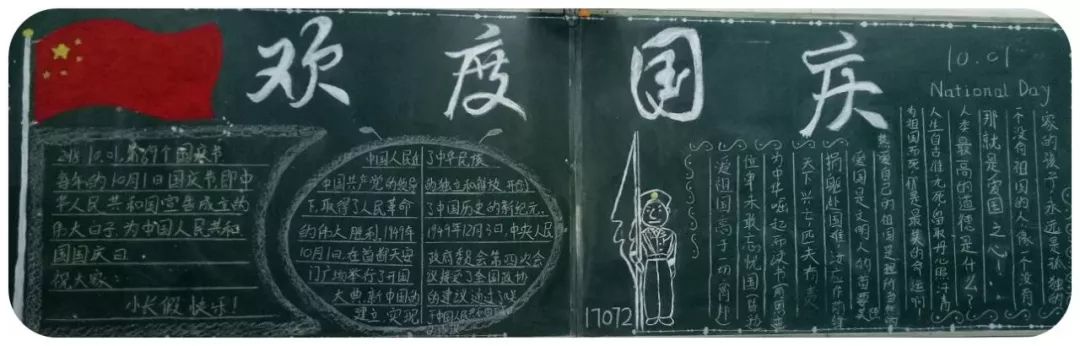 欢度国庆
10.01
National Day
2018.10.01,第69个国庆节
每年的10月1日国庆节即中
华人民共和国宣告成立的
伟大日子,为中国人民共和
国国庆日.
祝大家:
小长假快乐!
中国人民在
中国共产党的领导
下,取得了人民革命
的伟大胜利,1949年
10月1日,在首都天安
门广场举行了开国
大典,新中国的
建立,实现
了中华民族
的独立和解放 开创
了中国历史的新纪元.
1949年12月3日,中央人民
政府委员会第四次会
议接受了全国政协
的建议,通过了《关
17072
爱祖国高于一切 肖邦
位卑未敢忘忧国
为中华崛起而读书
天下兴亡匹夫有责
捐躯赴国难
爱国是文明人的首要美德
热爱自己的祖国是理所当然
为祖国而死,那是最美的命运啊!
人生自古谁无死,留取丹心照汗青
人类最高的道德是什么?
那就是:爱国之心!
一个没有祖国的人,像一个没有
家的孩子,永远是孤独的